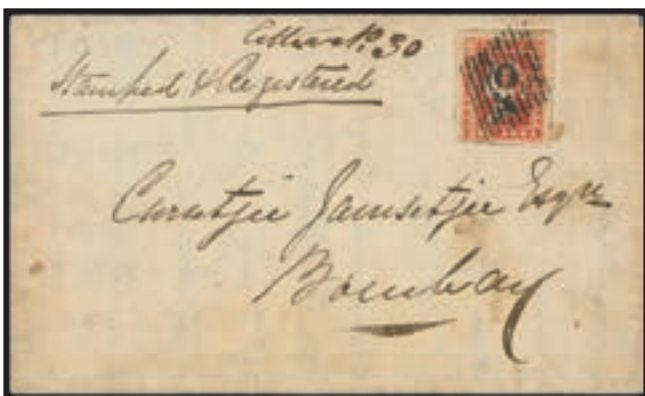 No 30
Stamped & Registered
Cursetjee Jamsetjee Esqre
Bombay